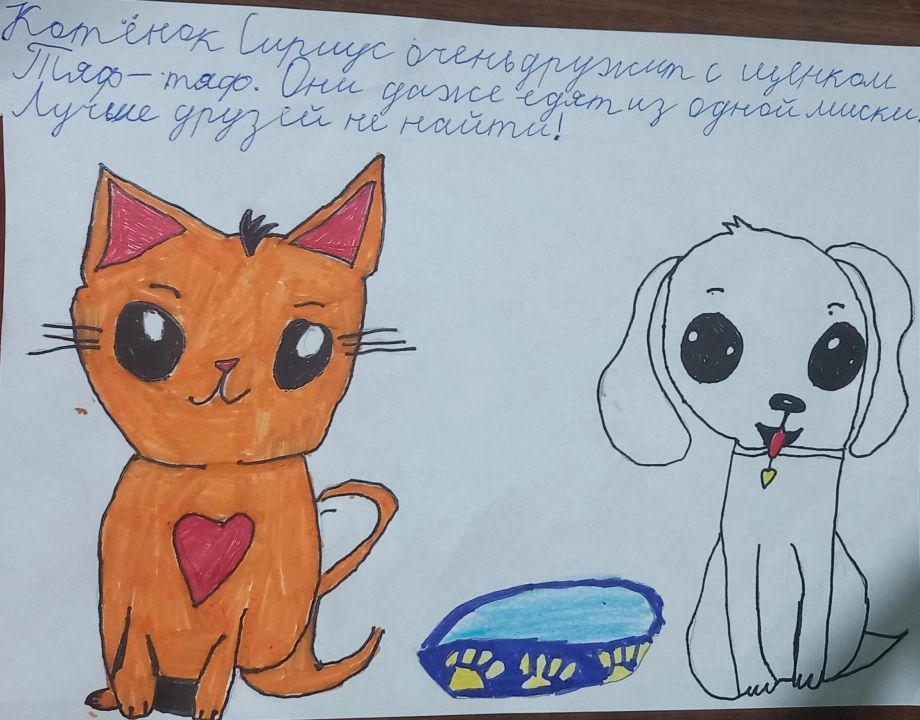 Котёнок Сириус очень дружит с щенком
Тяф-тяф. Они даже едят из одной миски.
Лучше друзей не найти!